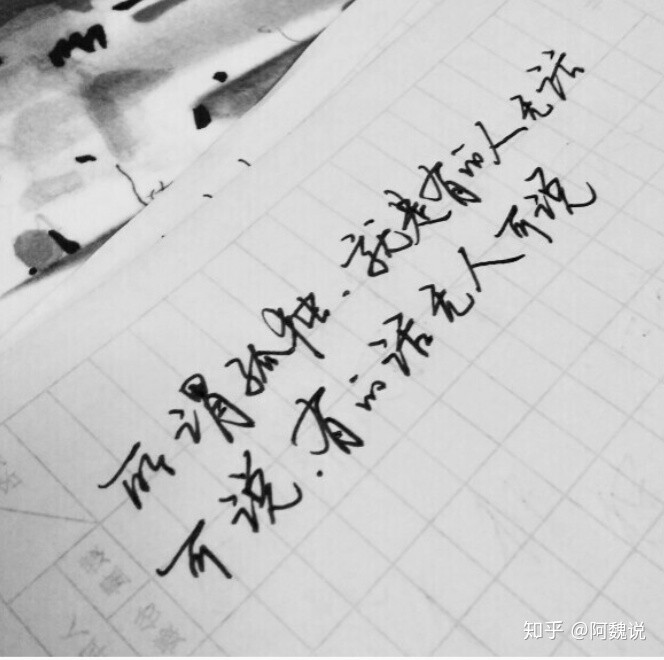 所谓孤独.就是有的人无话
可说.有的话无人可说
知乎 @阿魏说